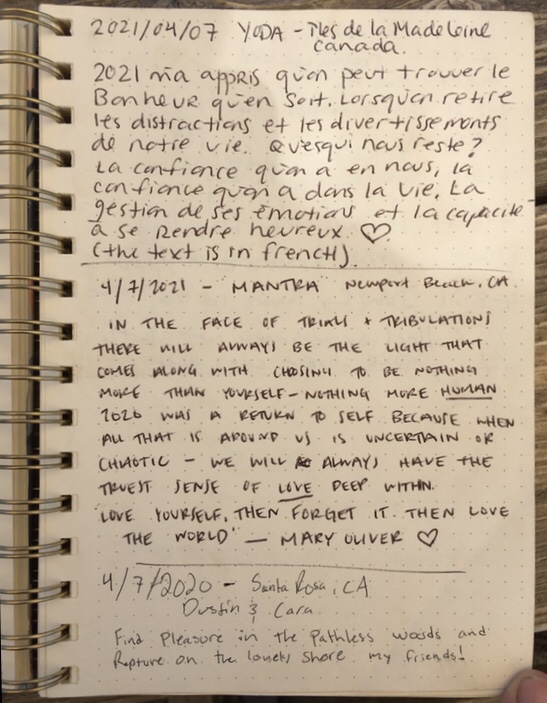 2021/04/07 YODA - Îles de la Madeleine
Canada.
2021 m'a appris qu'on peut trouver le
Bonheur qu'en soit. Lorsqu'on retire
les distractions et les divertissements
de notre vie. Qu'esqui nous reste?
La confiance qu'on a en nous, la
confiance qu'on a dans la vie. La
gestion de ses émotions et la capacité
à se rendre heureux ♡
(the text is in french).
4/7/2021 - "MANTRA" Newport Beach, CA.
IN THE FACE OF TRIALS + TRIBULATIONS
THERE WILL ALWAYS BE THE LIGHT THAT
COMES ALONG WITH CHOOSING TO BE NOTHING
MORE THAN YOURSELF - NOTHING MORE HUMAN
2020 WAS A RETURN TO SELF BECAUSE WHEN
ALL THAT IS AROUND US IS UNCERTAIN OR
CHAOTIC - WE WILL ALWAYS HAVE THE
TRUEST SENSE OF LOVE DEEP WITHIN.
"LOVE YOURSELF, THEN FORGET IT. THEN LOVE
THE WORLD" - MARY OLIVER ♡
4/7/2020 - Santa Rosa, CA
Dustin & Cara
Find Pleasure in the Pathless woods and
Rapture on the lonely shore my friends!